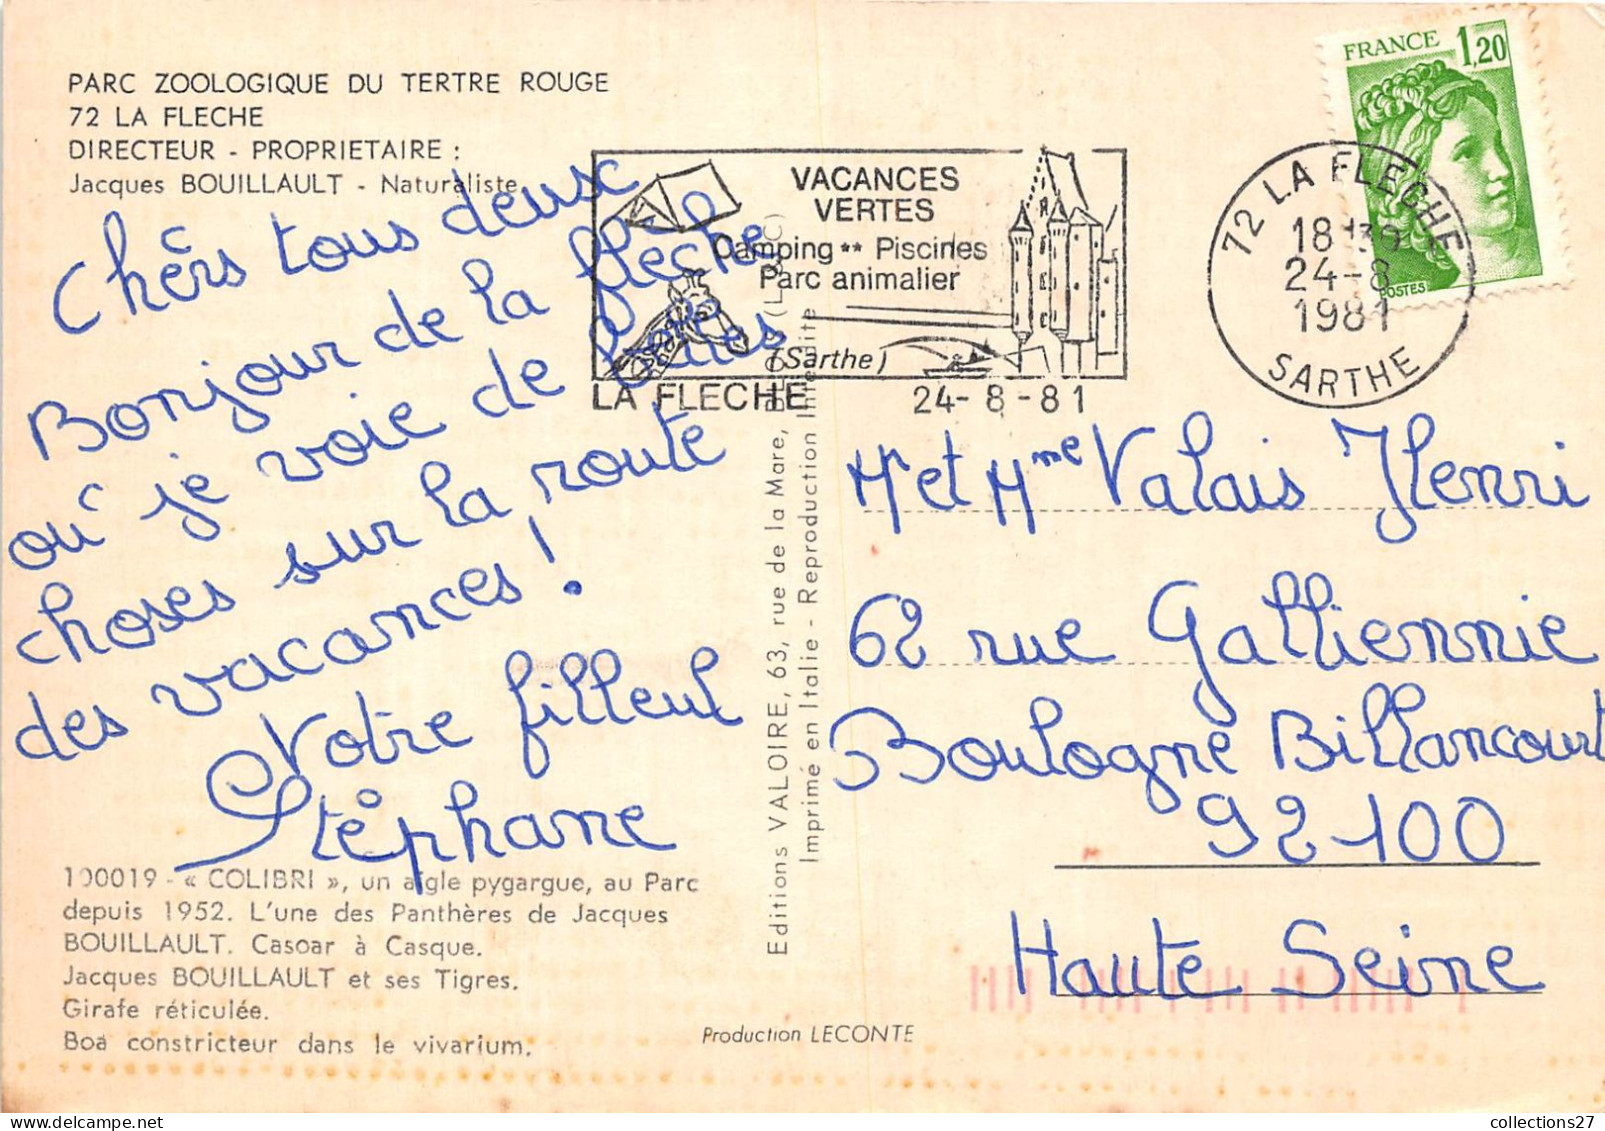 PARC ZOOLOGIQUE DU TERTRE ROUGE
72 LA FLECHE
DIRECTEUR - PROPRIETAIRE :
Jacques BOUILLAULT - Naturaliste
Chers tous deux
Bonjour de la fleche
où je voie de belles
choses sur la route
des vacances !
Votre filleul
Stéphane
100019 - « COLIBRI », un aigle pygargue, au Parc
depuis 1952. L'une des Panthères de Jacques
BOUILLAULT. Casoar à Casque.
Jacques BOUILLAULT et ses Tigres.
Girafe réticulée.
Boa constricteur dans le vivarium.
Editions VALOIRE, 63, rue de la Mare,
Imprimé en Italie - Reproduction Interdite
Production LECONTE
VACANCES
VERTES
Camping ** Piscines
Parc animalier
(Sarthe)
LA FLECHE 24-8-81
72 LA FLECHE
18 H30
24-8
1981
SARTHE
FRANCE 1,20
POSTES
Mr et Mme Valais Henri
62 rue Galliennie
Boulogne Billancourt
92100
Haute Seine
collections27